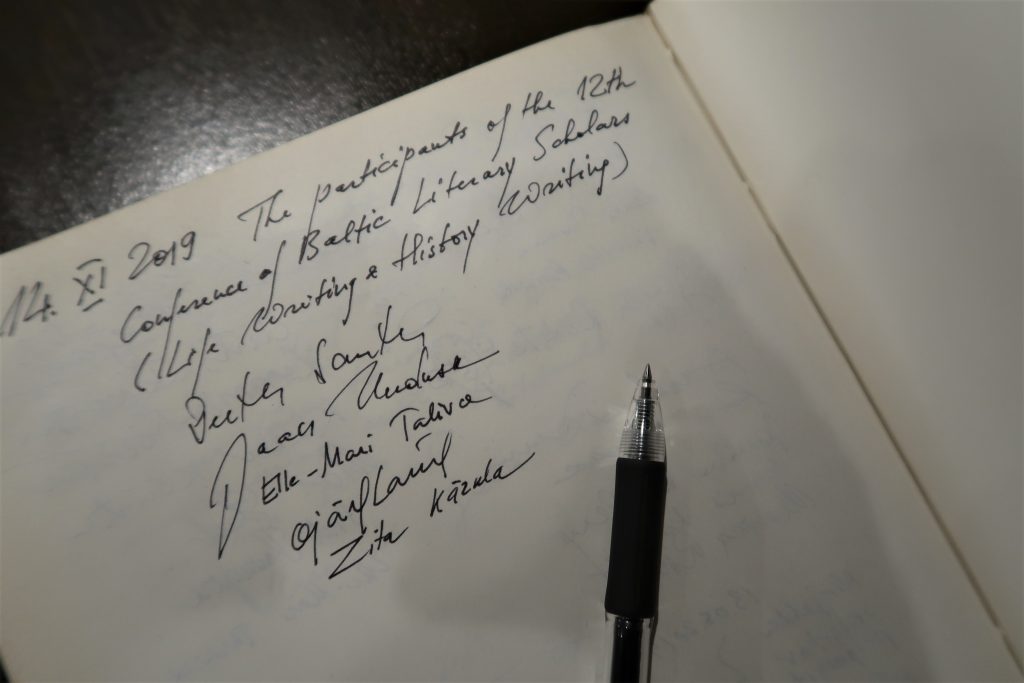 14. XI 2019 The participants of the 12th
Conference of Baltic Literary Scholars
(Life Writing & History Writing)
Jaan Undusk
Elle-Mari Talivee
Ojārs Lāms
Zita Kārkla